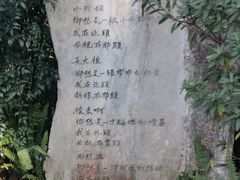 小时候
乡愁是一枚小小的
我在这头
母亲在那头
长大后
乡愁是一张窄窄的船票
我在这头
新娘在那头
后来啊
乡愁是一方矮矮的坟墓
我在外头
母亲在里头
而现在